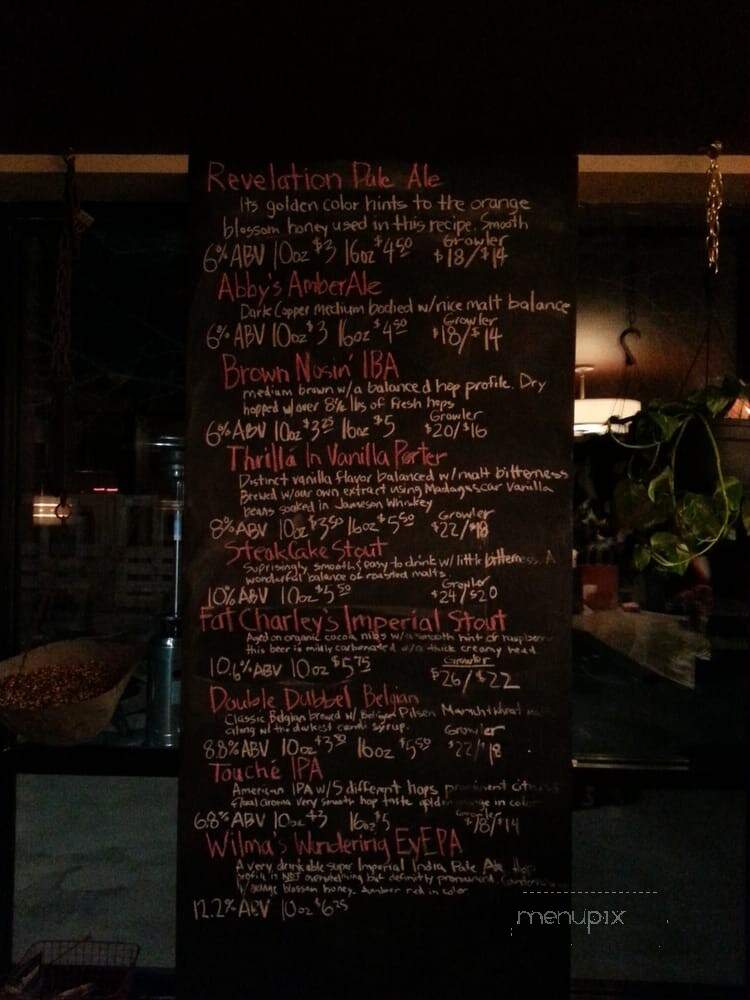 Revelation Pale Ale
Its golden color hints to the orange
blossom honey used in this recipe. Smooth
Growler
6% ABV 10oz $3 16oz $4.50 $18/$14
Abby's Amber Ale
Dark Copper medium bodied w/nice malt balance
Growler
6% ABV 10oz $3 16oz $4.50 $18/$14
Brown Nosin' IBA
medium brown w/a balanced hop profile. Dry
hopped w/over 8½ lbs of Fresh hops
Growler
6% ABV 10oz $3.25 16oz $5 $20/$16
Thrilla In Vanilla Porter
Distinct vanilla flavor balanced w/malt bitterness
Brewed w/our own extract using Madagascar Vanilla
beans soaked in Jameson Whiskey
Growler
8% ABV 10oz $3.50 16oz $5.50 $22/$18
SteakCake Stout
Suprisingly smooth & easy to drink w/ little bitterness. A
wonderful balance of roasted malts.
Growler
10% ABV 10oz $5.50 $24/$20
Fat Charley's Imperial Stout
Aged on organic cocoa nibs w/a smooth hint of raspberry
this beer is mildly carbonated w/a thick creamy head
Growler
10.6% ABV 10oz $5.75 $26/$22
Double Dubbel Belgian
Classic Belgian brewed w/ Belgian Pilsen
along w/ the darkest candi syrup.
Growler
8.8% ABV 10oz $3.50 16oz $5.50 $22/$18
Touché IPA
American IPA w/5 different hops prominent citrus
floral aroma very smooth hop taste golden orange in color
Growler
6.8% ABV 10oz $3 16oz $5 $18/$14
Wilma's Wandering EyEPA
A very drinkable super Imperial India Pale Ale
profile is NOT overwhelming but definitly pronounced.
w/ orange blossom honey. Amber red in color
12.2% ABV 10oz $6.25
menupix